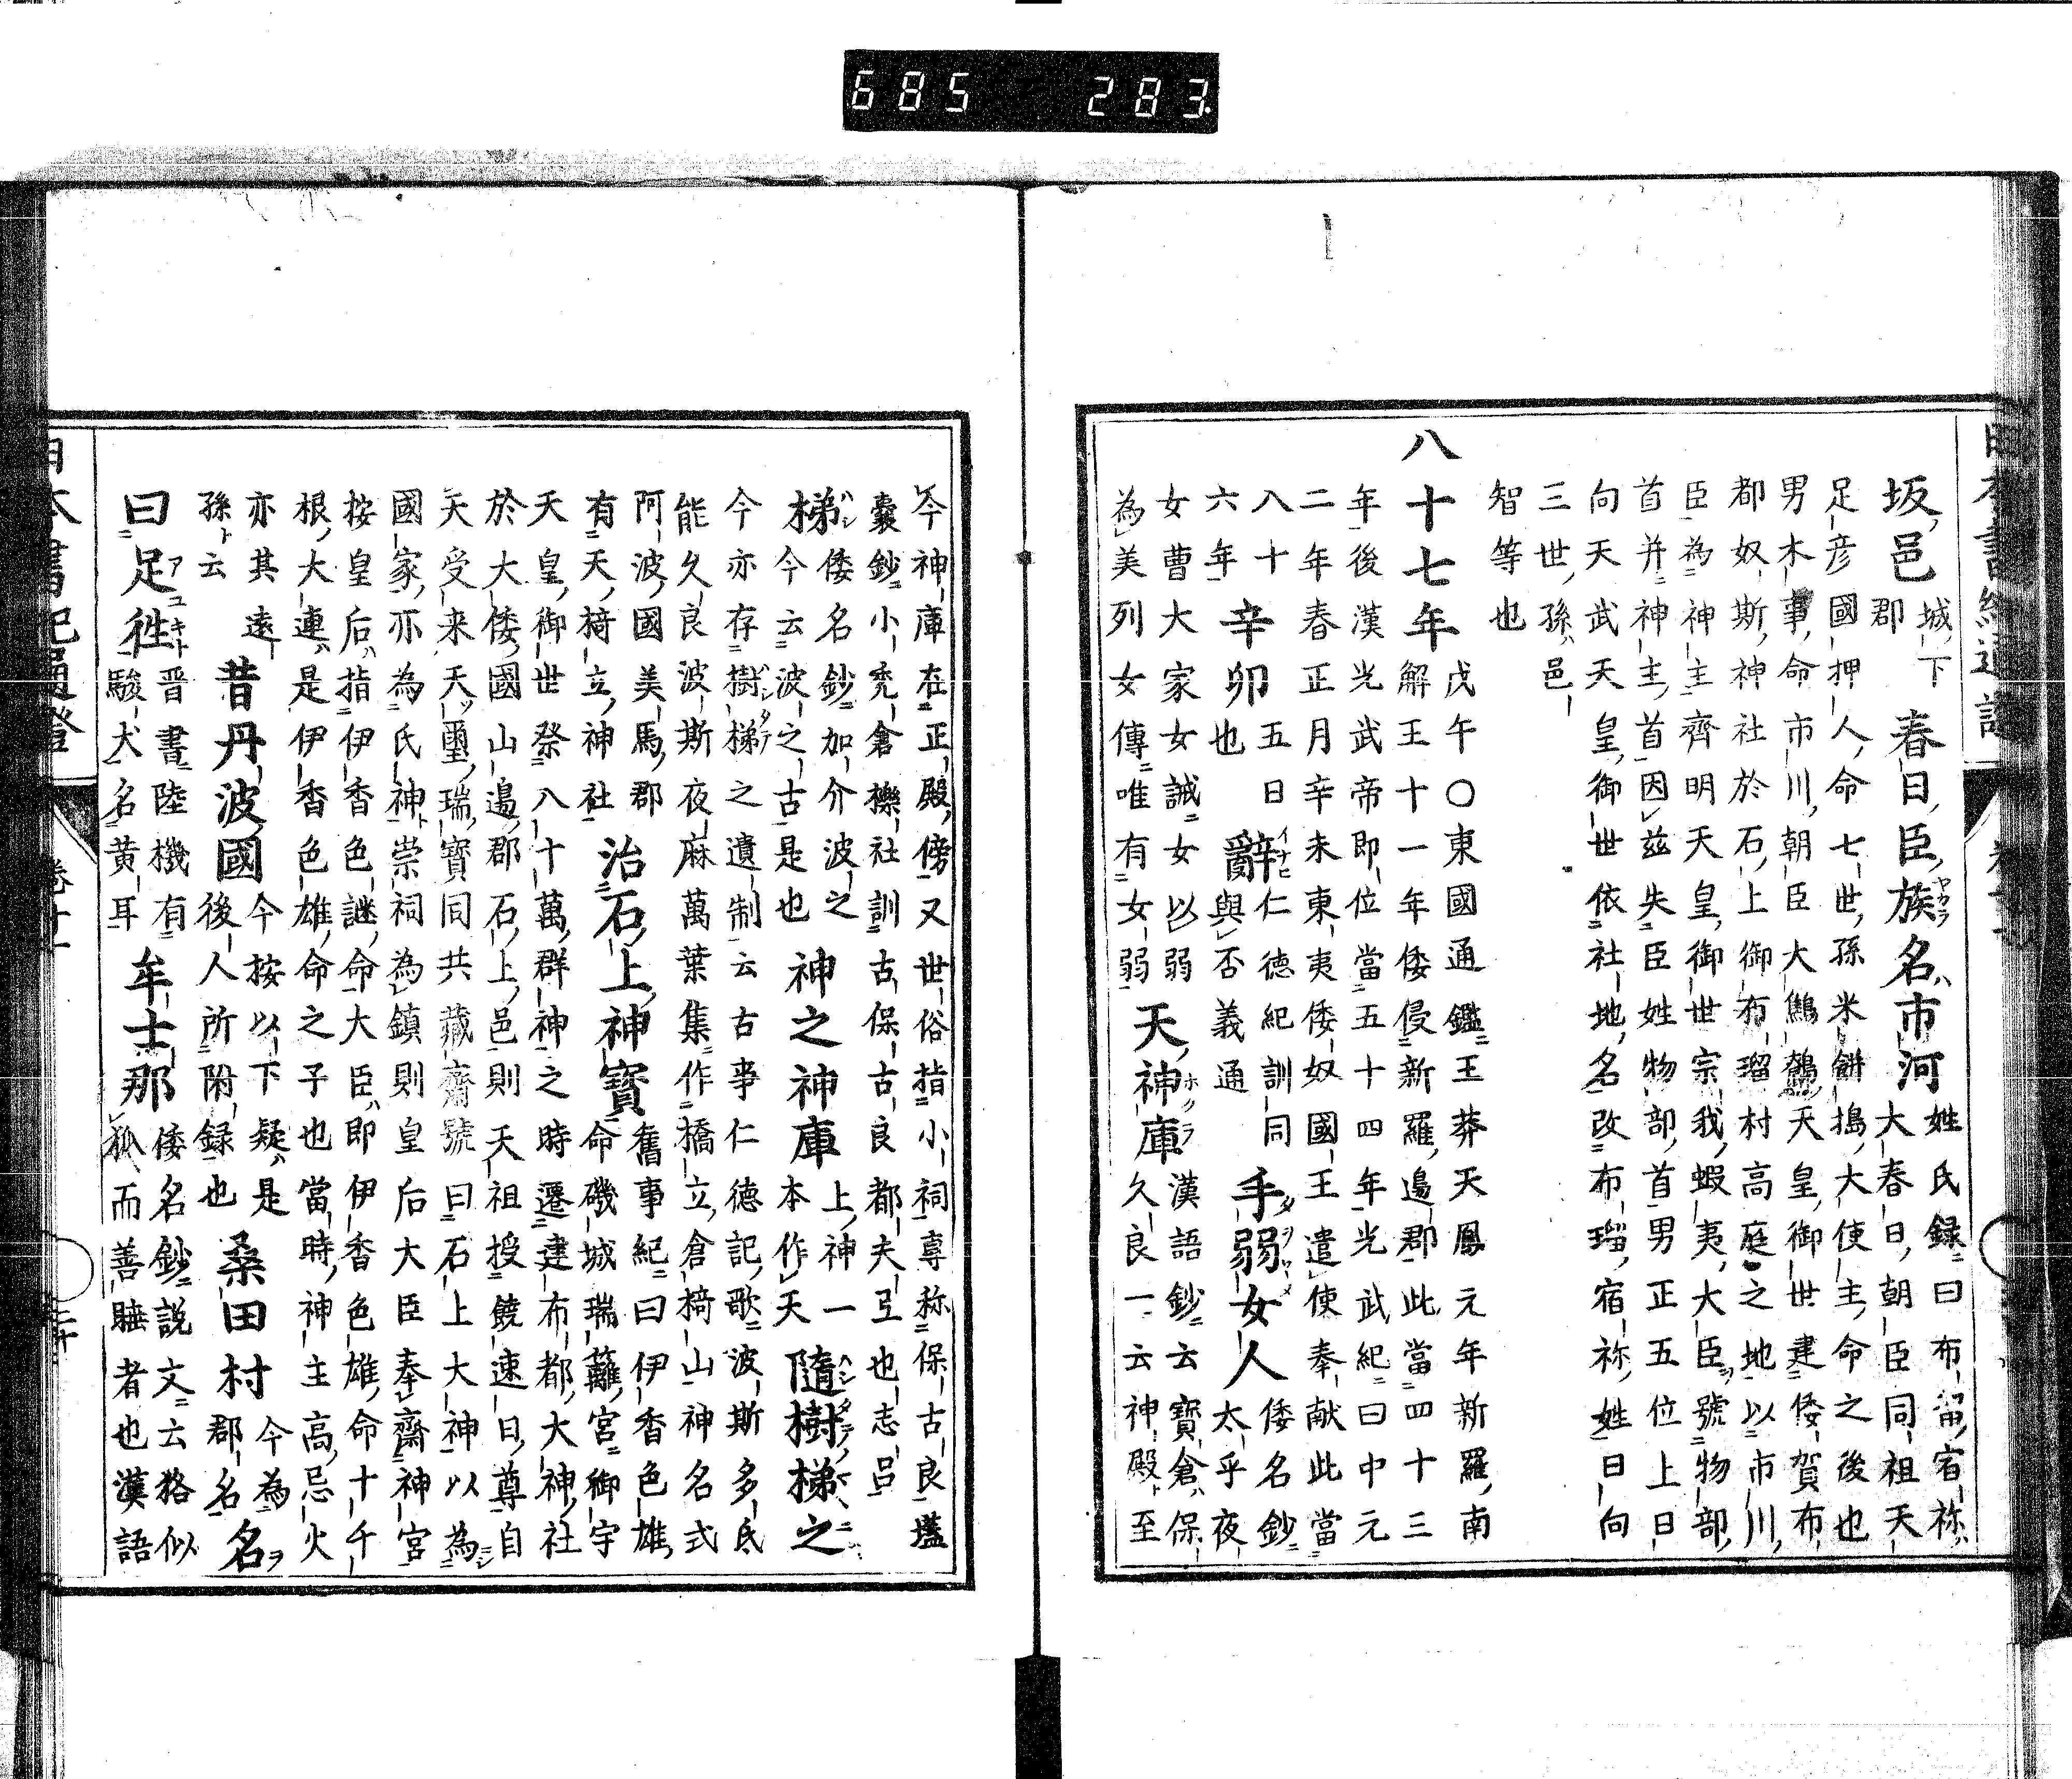 坂邑
城下
郡
春日臣族名市河
姓氏録曰布留宿祢
大春日朝臣同祖天
足彦國押人命七世孫米餅搗大使主命之後也
男木事命市川朝臣大鷦鷯天皇御世建倭賀布
都奴斯神社於石上御布瑠村高庭之地以市川
臣為神主齊明天皇御世宗我蝦夷大臣號物部
首并神主首因茲失臣姓物部首男正五位上日
向天武天皇御世依社地名改布瑠宿祢姓日向
三世孫邑
智等也
八十七年
戊午〇東國通鑑王莽天鳳元年新羅南
解王十一年倭侵新羅邊郡此當四十三
年後漢光武帝即位當五十四年光武紀曰中元
二年春正月辛未東夷倭奴國王遣使奉献此當
八十
六年
辛卯
五日
也
辭
仁德紀訓同
與否義通
手弱女人
倭名鈔
太乎夜
女曹大家女誡女以弱
為美列女傳唯有女弱
天神庫
漢語鈔云寶倉保
久良一云神殿至
今神庫在正殿傍又世俗指小祠専称保古良壒
囊鈔小禿倉櫟社訓古保古良都夫弖也志呂
梯
倭名鈔加介波之
今云波之古是也
神之神庫
上神一
本作天
隨樹梯之
今亦存樹梯之遺制云古事仁德記歌波斯多氐
能久良波斯夜麻萬葉集作橋立倉椅山神名式
阿波國美馬郡
有天椅立神社
治石上神寶
舊事紀曰伊香色雄
命磯城瑞籬宮御宇
天皇御世祭八十萬群神之時遷建布都大神社
於大倭國山邊郡石上邑則天祖授饒速日尊自
天受来天璽瑞寶同共藏齋號曰石上大神以為
國家亦為氏神崇祠為鎮則皇后大臣奉齋神宮
按皇后指伊香色謎命大臣即伊香色雄命十千
根大連是伊香色雄命之子也當時神主高忌火
亦其遠
孫云
昔丹波國
今按以下疑是
後人所附録也
桑田村
今為
郡名
名
曰足往
晋書陸機有
駿犬名黄耳
牟士那
倭名鈔説文云狢似
狐而善睡者也漢語
685 283